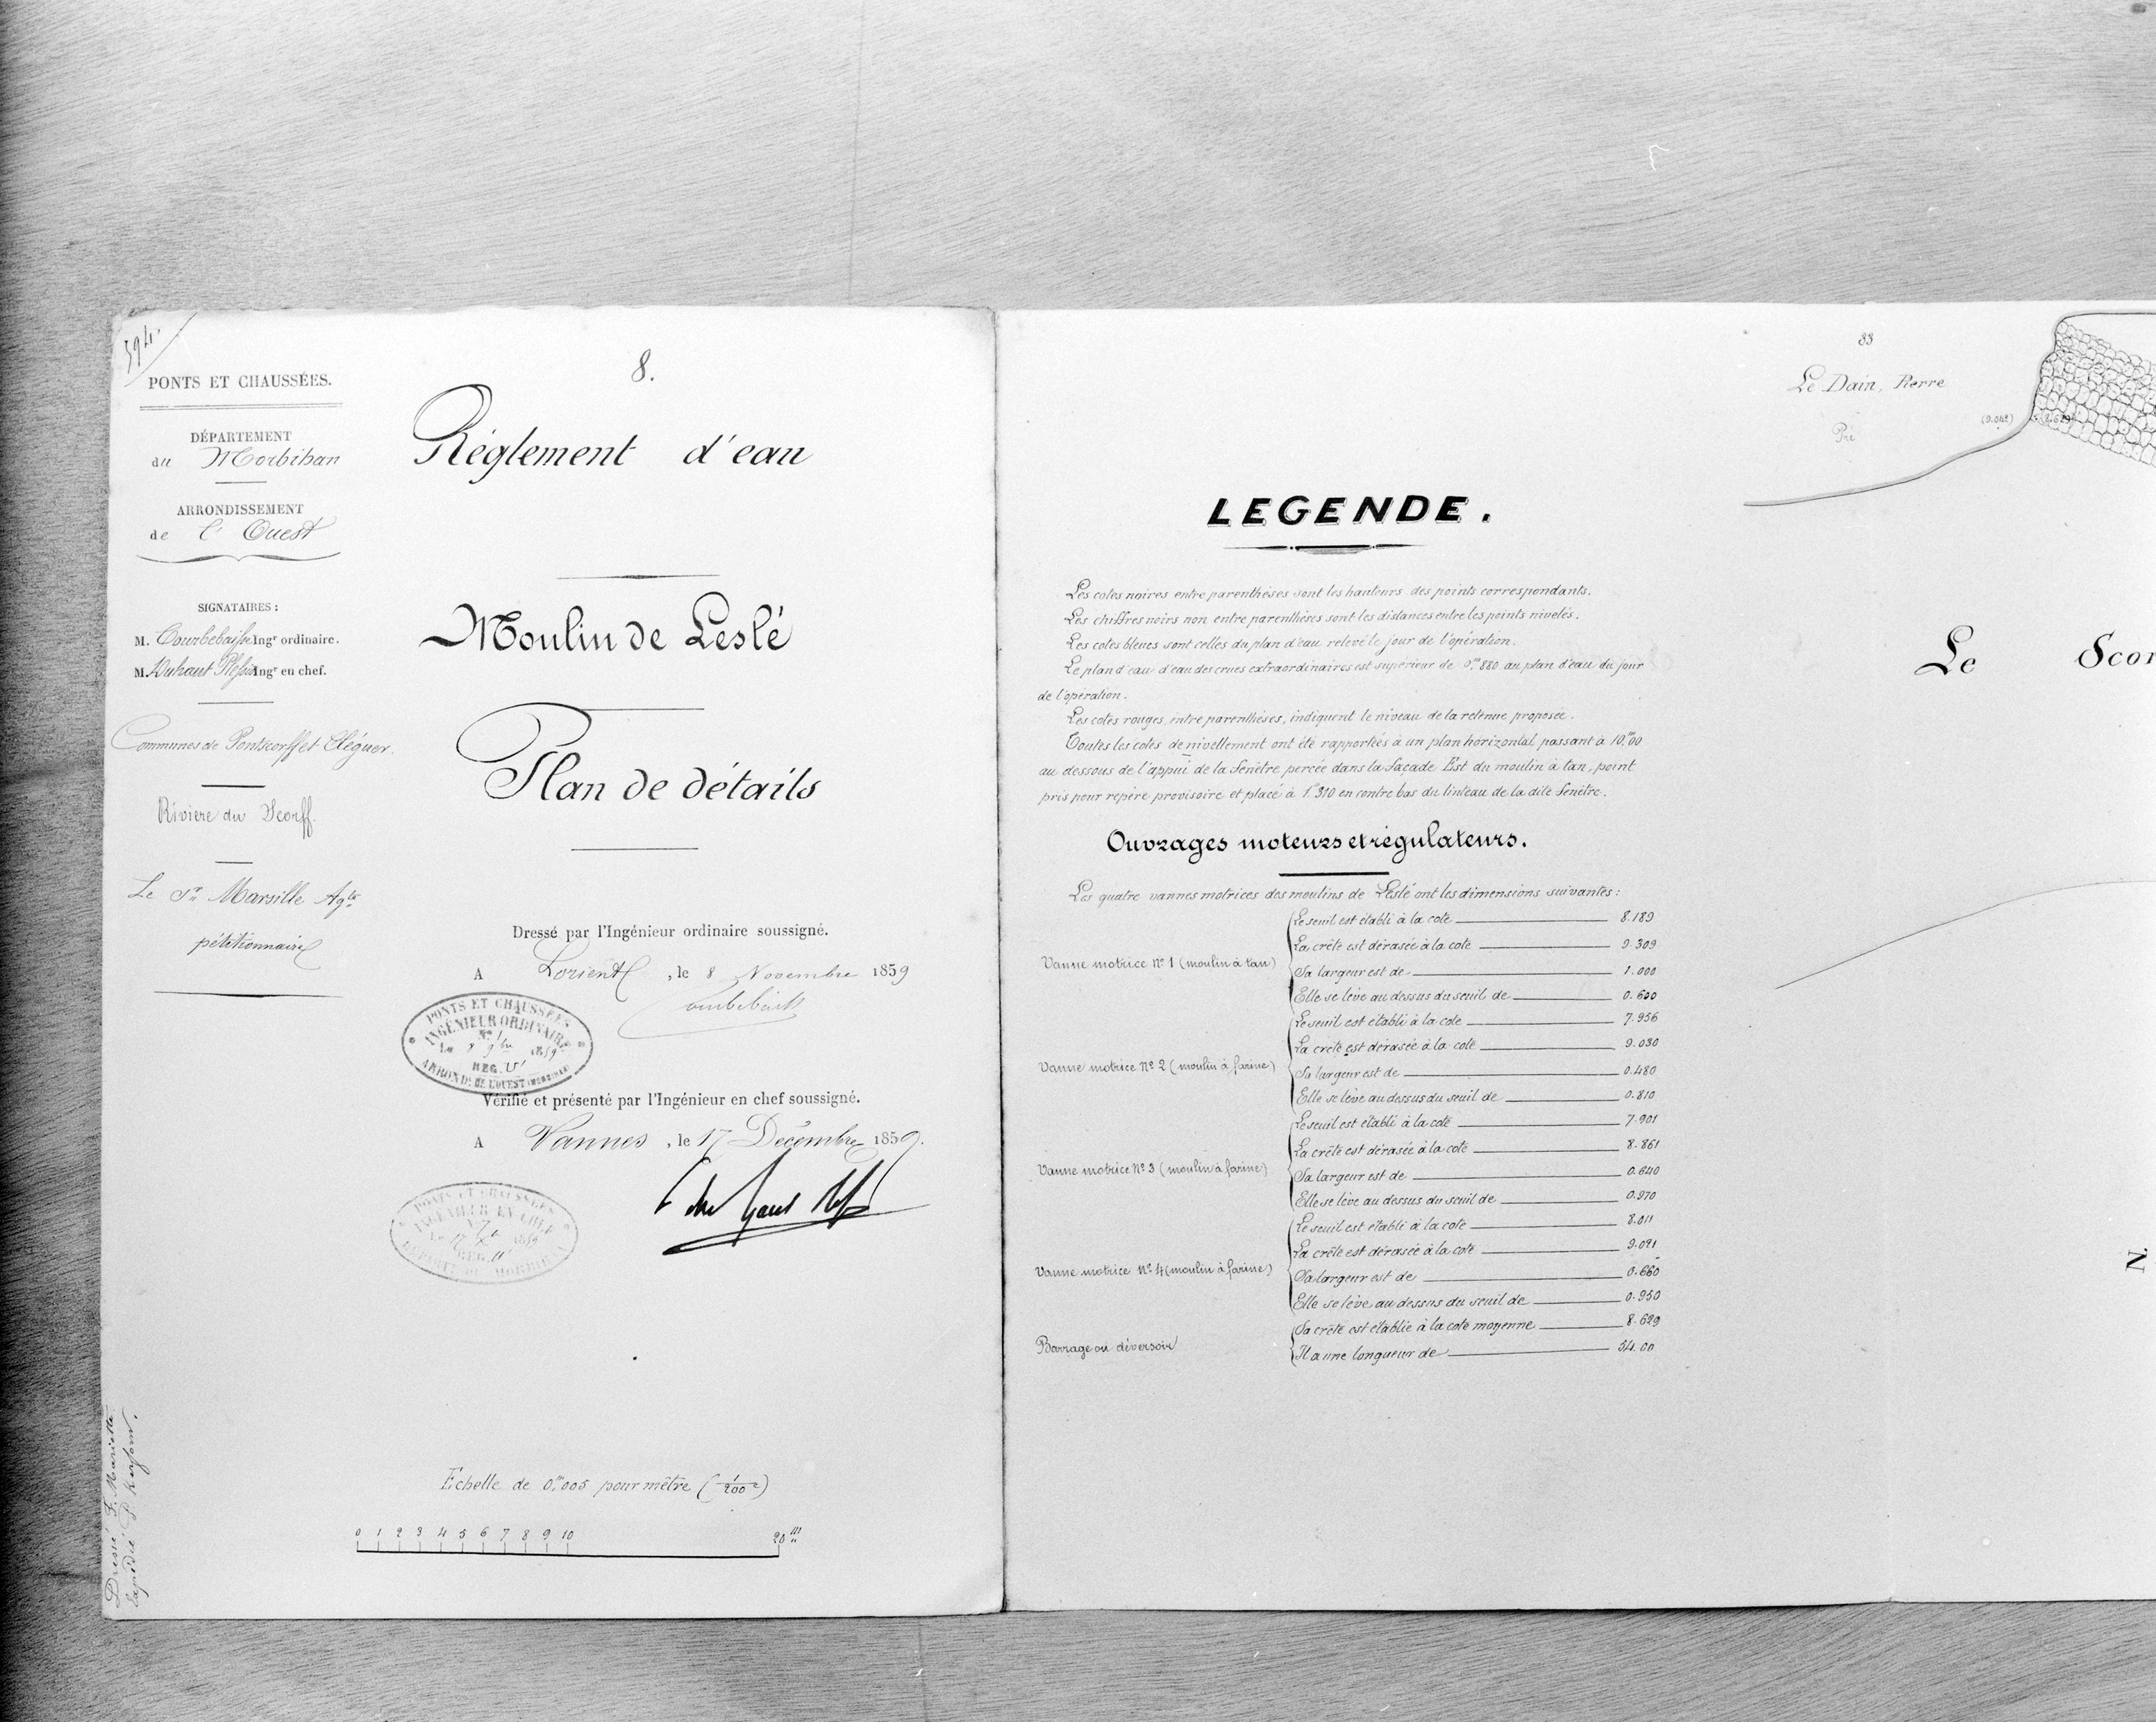 594.
PONTS ET CHAUSSÉES.
DÉPARTEMENT
du Morbihan
ARRONDISSEMENT
de l'Ouest
SIGNATAIRES :
M. Courbebaisse Ingr ordinaire.
M. Duhaut Plessis Ingr en chef.
Communes de Pontscorff et Cléguer.
Rivière du Scorff.
Le Sr Marsille Agte
pétitionnaire
Dressé F. Mariette
8.
Réglement d'eau
Moulin de Leslé
Plan de détails
Dressé par l'Ingénieur ordinaire soussigné.
A Lorient, le 8 Novembre 1859
PONTS ET CHAUSSÉES
INGÉNIEUR ORDINAIRE
No 1
Le 8 9bre 1859
REG. U'
ARROND. DE L'OUEST (MORBIHAN)
Vérifié et présenté par l'Ingénieur en chef soussigné.
A Vannes, le 17 Décembre 1859.
PONTS ET CHAUSSÉES
INGÉNIEUR EN CHEF
Echelle de 0,m005 pour mètre (1/200e)
0 1 2 3 4 5 6 7 8 9 10 20m
LEGENDE.
Les cotes noires entre parenthèses sont les hauteurs des points correspondants.
Les chiffres noirs non entre parenthèses sont les distances entre les points nivelés.
Les cotes bleues sont celles du plan d'eau relevé le jour de l'opération.
Le plan d'eau d'eau des crues extraordinaires est supérieur de 0,m880 au plan d'eau du jour
de l'opération.
Les cotes rouges, entre parenthèses, indiquent le niveau de la retenue proposée.
Toutes les cotes de nivellement ont été rapportées à un plan horizontal passant à 10,m00
au dessous de l'appui de la fenêtre percée dans la façade Est du moulin à tan, point
pris pour repère provisoire et placé à 1,m310 en contre bas du linteau de la dite fenêtre.
Ouvrages moteurs et régulateurs.
Les quatre vannes motrices des moulins de Leslé ont les dimensions suivantes :
Vanne motrice No 1 (moulin à tan)
Le seuil est établi à la cote 8.189
La crête est dérasée à la cote 9.309
Sa largeur est de 1.000
Elle se lève au dessus du seuil de 0.600
Vanne motrice No 2 (moulin à farine)
Le seuil est établi à la cote 7.956
La crête est dérasée à la cote 9.030
Sa largeur est de 0.480
Elle se lève au dessus du seuil de 0.810
Vanne motrice No 3 (moulin à farine)
Le seuil est établi à la cote 7.901
La crête est dérasée à la cote 8.861
Sa largeur est de 0.640
Elle se lève au dessus du seuil de 0.970
Vanne motrice No 4 (moulin à farine)
Le seuil est établi à la cote 8.011
La crête est dérasée à la cote 9.091
Sa largeur est de 0.660
Elle se lève au dessus du seuil de 0.950
Barrage ou déversoir
Sa crête est établie à la cote moyenne 8.629
Il a une longueur de 54.00
33
Le Dain, Pierre
Pré
(9.042)
Le Scor
N.